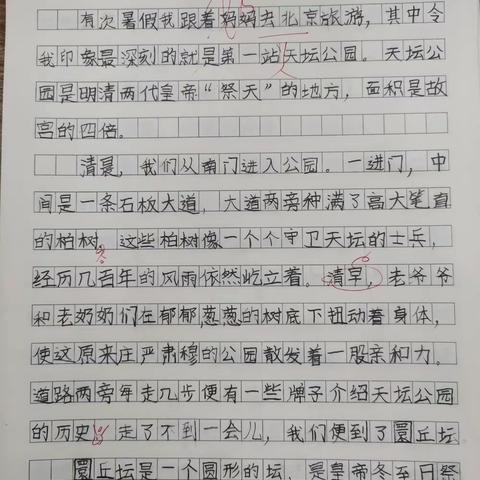 有次暑假我跟着妈妈去北京旅游，其中令
我印象最深刻的就是第一站天坛公园。天坛公
园是明清两代皇帝“祭天”的地方，面积是故
宫的四倍。
清晨，我们从南门进入公园。一进门，中
间是一条石板大道，大道两旁种满了高大笔直
的柏树。这些柏树像一个个守卫天坛的士兵，
经历几百年的风雨依然屹立着。清早，老爷爷
和老奶奶们在郁郁葱葱的树底下扭动着身体，
使这原来庄严肃穆的公园散发着一股亲和力。
道路两旁每走几步便有一些牌子介绍天坛公园
的历史。走了不到一会儿，我们便到了圜丘坛
圜丘坛是一个圆形的坛，是皇帝冬至日祭